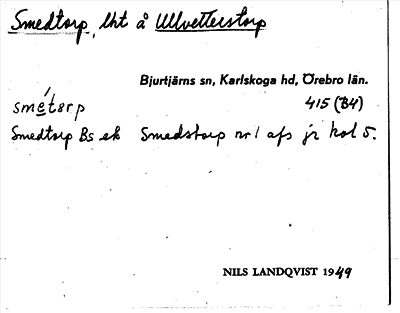 Smedtorp, lht å Ullvetterstorp
Bjurtjärns sn, Karlskoga hd, Örebro län.
smétɵrp 415 (B4)
Smedtorp Bs ek Smedstorp nr 1 afs jr kol 5.
NILS LANDQVIST 1949